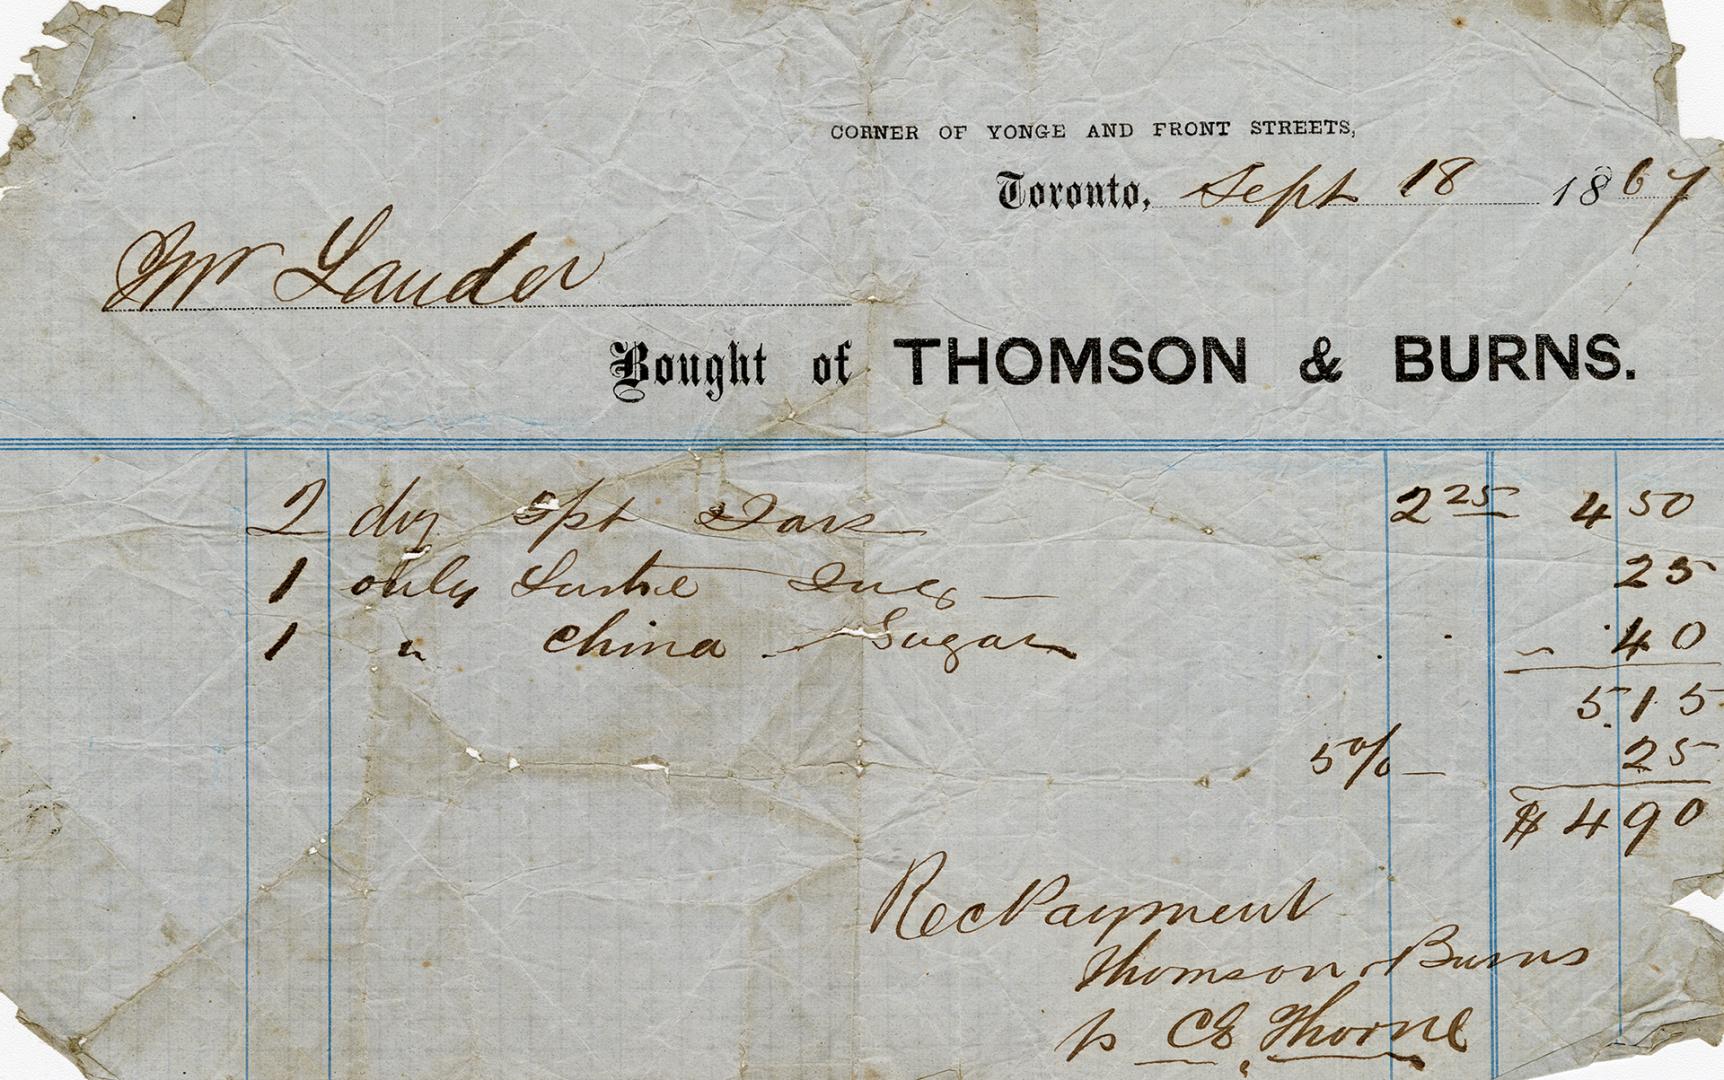 CORNER OF YONGE AND FRONT STREETS,
Toronto, Sept 18 1867
Mr Lauder
Bought of THOMSON & BURNS.
2 doz 3pt Jars 2 25 4 50
1 only Lustre Jug — 25
1 " China Sugar 40
5.15
5% — 25
$ 4 90
Rec Payment
Thomson & Burns
p CE. Thorne